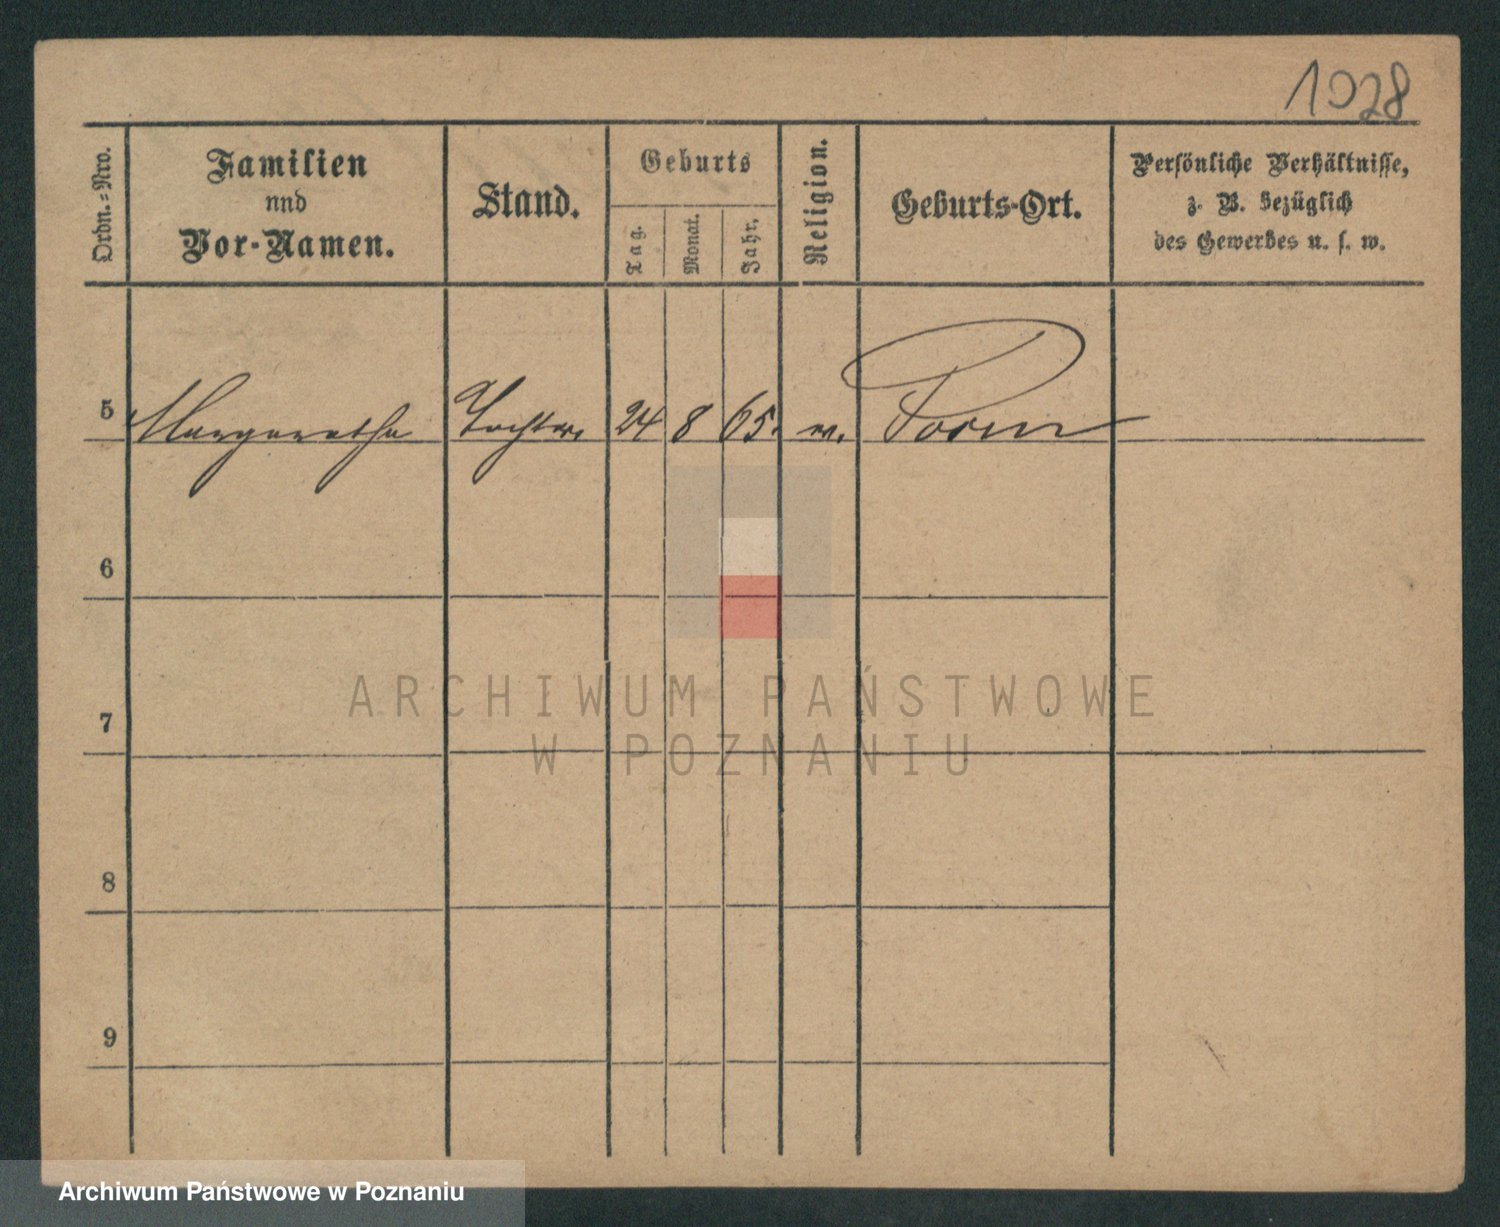 1028
Ordn.=Nro.
Familien
und
Vor-Namen.
Stand.
Geburts
Tag.
Monat.
Jahr.
Religion.
Geburts-Ort.
Persönliche Verhältnisse,
z. B. bezüglich
des Gewerbes u. s. w.
5 Margarethe Tochter 24 8 65. Posen
6
7
8
9
ARCHIWUM PAŃSTWOWE
W POZNANIU
Archiwum Państwowe w Poznaniu